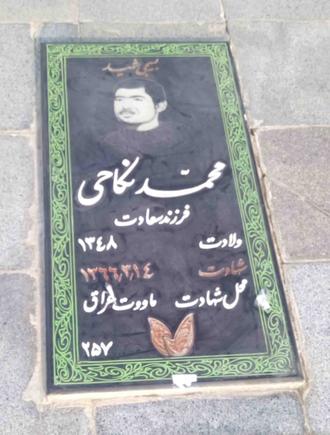 بسیجی شهید
محمد نکاحی
فرزند سعادت
ولادت ۱۳۴۸
شهادت ۱۳۶۶,۳,۱۴
محل شهادت ماووت عراق
۲۵۷